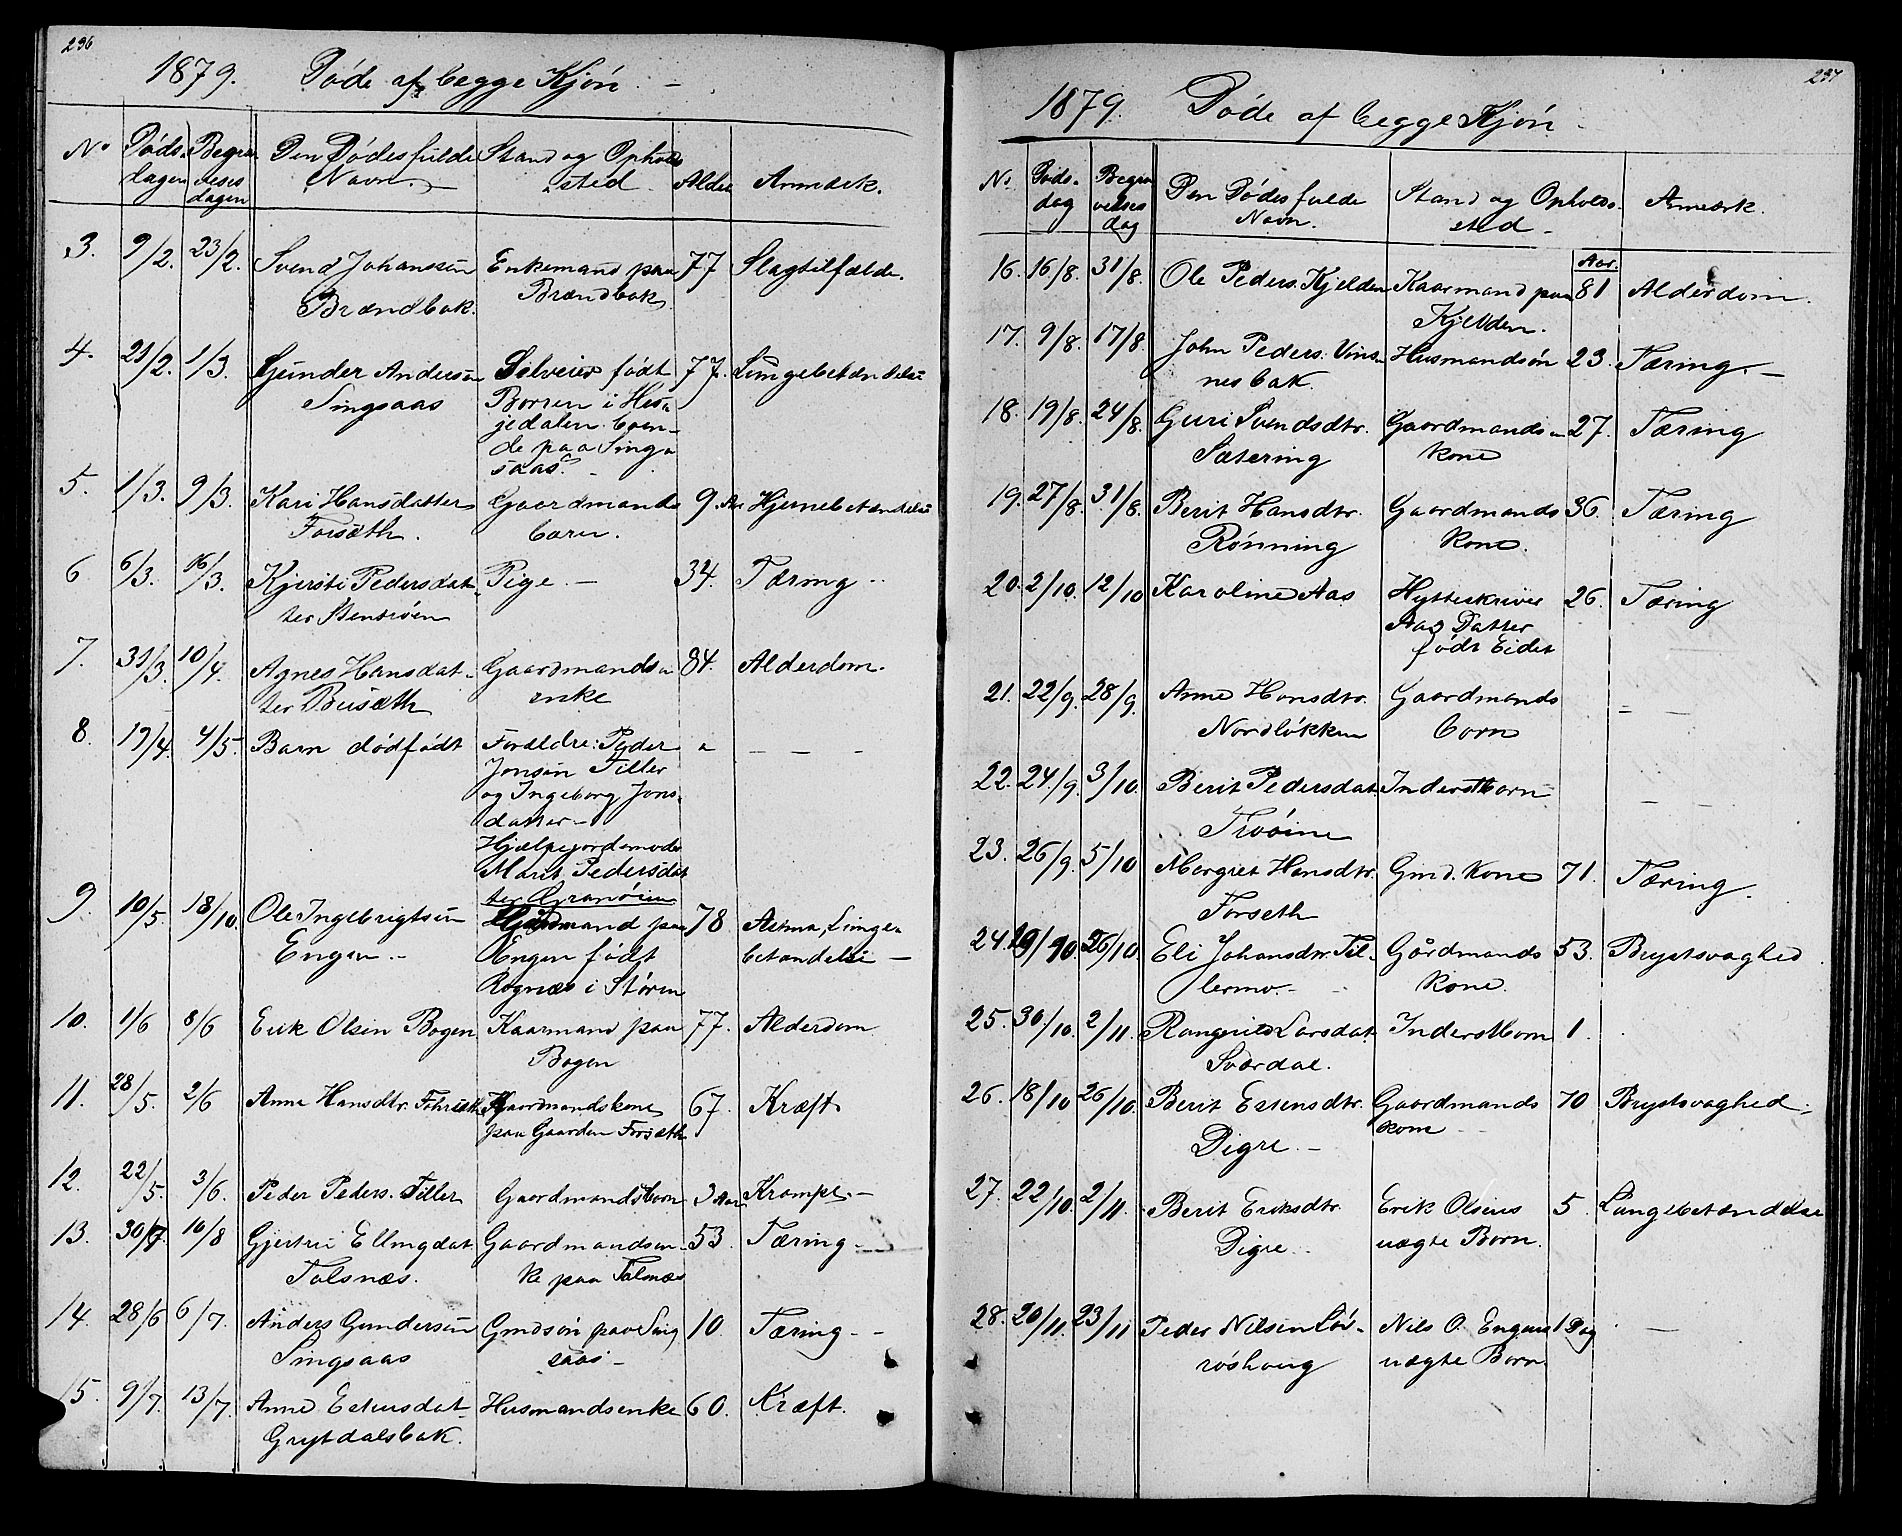 236
1879. Døde af begge Kjøn. -
No Døds- dagen Begra- velses dagen Den Dødes fulde Navn. Stand og Opholds sted. Alder Anmærk.
3. 9/2. 23/2. Svend Johansen Enkemand paa 77 Slagtilfælde.
Brændbak. Brændbak
4. 21/2. 1/3. Gunder Andersen Selveier født 77. Lungebetændelse
Singsaas Borren i Her-
jedalen boen-
de paa Sing-
saas. -
5. 1/3. 9/3. Kari Hansdatter Gaardmands 9. Aar Hjernebetændelse
Forsæth. barn.
6 6/3. 16/3. Kjersti Pedersdat- Pige. - 34. Tæring -
ter Stenrøen
7. 31/3. 10/4. Agnes Hansdat- Gaardmands- 84. Alderdom.
ter Busæth enke
8. 19/4. 4/5. Barn dødfødt Forældre: Peder " - - -
Jonsen Tiller
og Ingeborg Jons-
datter -
Hjælpejordemoder
Marit Pedersdat
ter Granøien
9. 10/5. 18/10. Ole Ingebrigtsen mand paa 78 Astma, Lunge-
Engen - Engen født betændelse -
Rognæs i Støren
10. 1/6 8/6 Erik Olsen Bogen Kaarmand paa 77. Alderdom
Bogen
11. 28/5. 2/6 Anne Hansdtr. Forsæth Gaardmandskone 67. Kræft.
paa Gaarden Forsæth
12. 22/5. 3/6. Peder Peders. Tiller Gaardmandsbarn 3 Aar Krampe. -
13. 30/7. 10/8 Gjertru Ellingdat. Gaardmandsen- 53. Tæring -
Talsnæs. ke paa Talsnæs
14. 28/6 6/7. Anders Gundersen Gmdsøn paa Sing 10. Tæring - -
Singsaas saas -
15. 9/7. 13/7. Anne Estensdat- Husmandsenke 60. Kræft.
Grytdalsbak.
237
1879. Døde af begge Kjøn -
No. Døds- dag Begra velses dag Den Dødes fulde Navn. Stand og Opholds- sted - Anmærk.
Aar.
16. 16/8. 31/8. Ole Peders. Kjelden Kaarmand paa 81 Alderdom.
Kjelden.
17. 9/8. 17/8. John Peders. Vins- Husmandsøn 23. Tæring. -
nesbak.
18. 19/8. 24/8. Guri Svendsdtr. Gaardmands- 27. Tæring
Sætering kone
19. 27/8. 31/8. Berit Hansdtr. Gaardmands 36. Tæring
Rønning kone.
20. 2/10. 12/10 Karoline Aas Hytteskriver 26. Tæring
Aas Datter
født Eidet
21. 22/9. 28/9. Anne Hansdtr. Gaardmands = - -
Nordløkken barn
22. 24/9. 3/10. Berit Pedersdat. Inderstbarn - - -
Trøoine
23. 26/9. 5/10 Margret Hansdtr. Gmd. Kone 71. Tæring.
Forseth
24. 19/10. 26/10. Eli Johansdtr. Til- Gårdmands 53. Brystsvaghed
lermo. - kone.
25. 30/10. 2/11. Rangnild Larsdat. Inderstbarn 1.
Sværdal.
26. 18/10 26/10. Berit Estensdtr. Gaardmands 70 Brystsvaghed.
Digre. - kone - -
27. 22/10. 2/11. Berit Eriksdtr. Erik Olsens 5. Lungebetændelse
Digre. - uægte Barn.
28. 20/11. 23/11 Peder Nilsen Løv- Nils O. Engens 1 Dag -
røshaug uægte Barn.